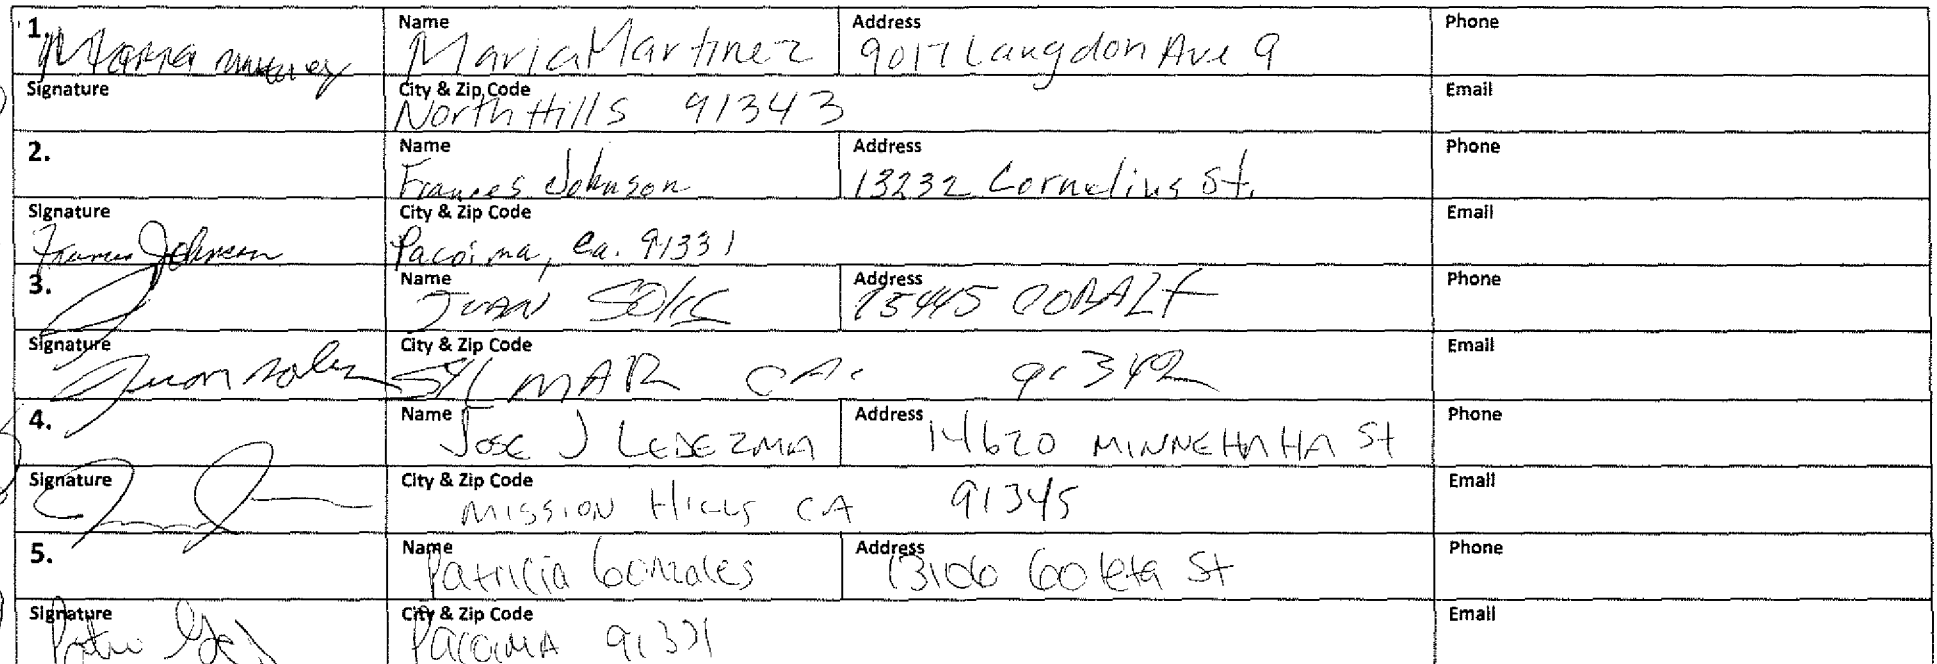 1. Maria Martinez Name Maria Martinez Address 9017 Langdon Ave 9 Phone
Signature City & Zip Code North Hills 91343 Email
2. Name Frances Johnson Address 13232 Cornelius St. Phone
Signature Frances Johnson City & Zip Code Pacoima, Ca. 91331 Email
3. Name JUAN SOLIS Address 15445 COBALT Phone
Signature Juan Solis City & Zip Code SYLMAR CA. 91342 Email
4. Name JOSE J LEDEZMA Address 14620 MINNEHAHA St Phone
Signature City & Zip Code MISSION HILLS CA 91345 Email
5. Name Patricia Gonzales Address 13106 Goleta St Phone
Signature City & Zip Code PACOIMA 91331 Email